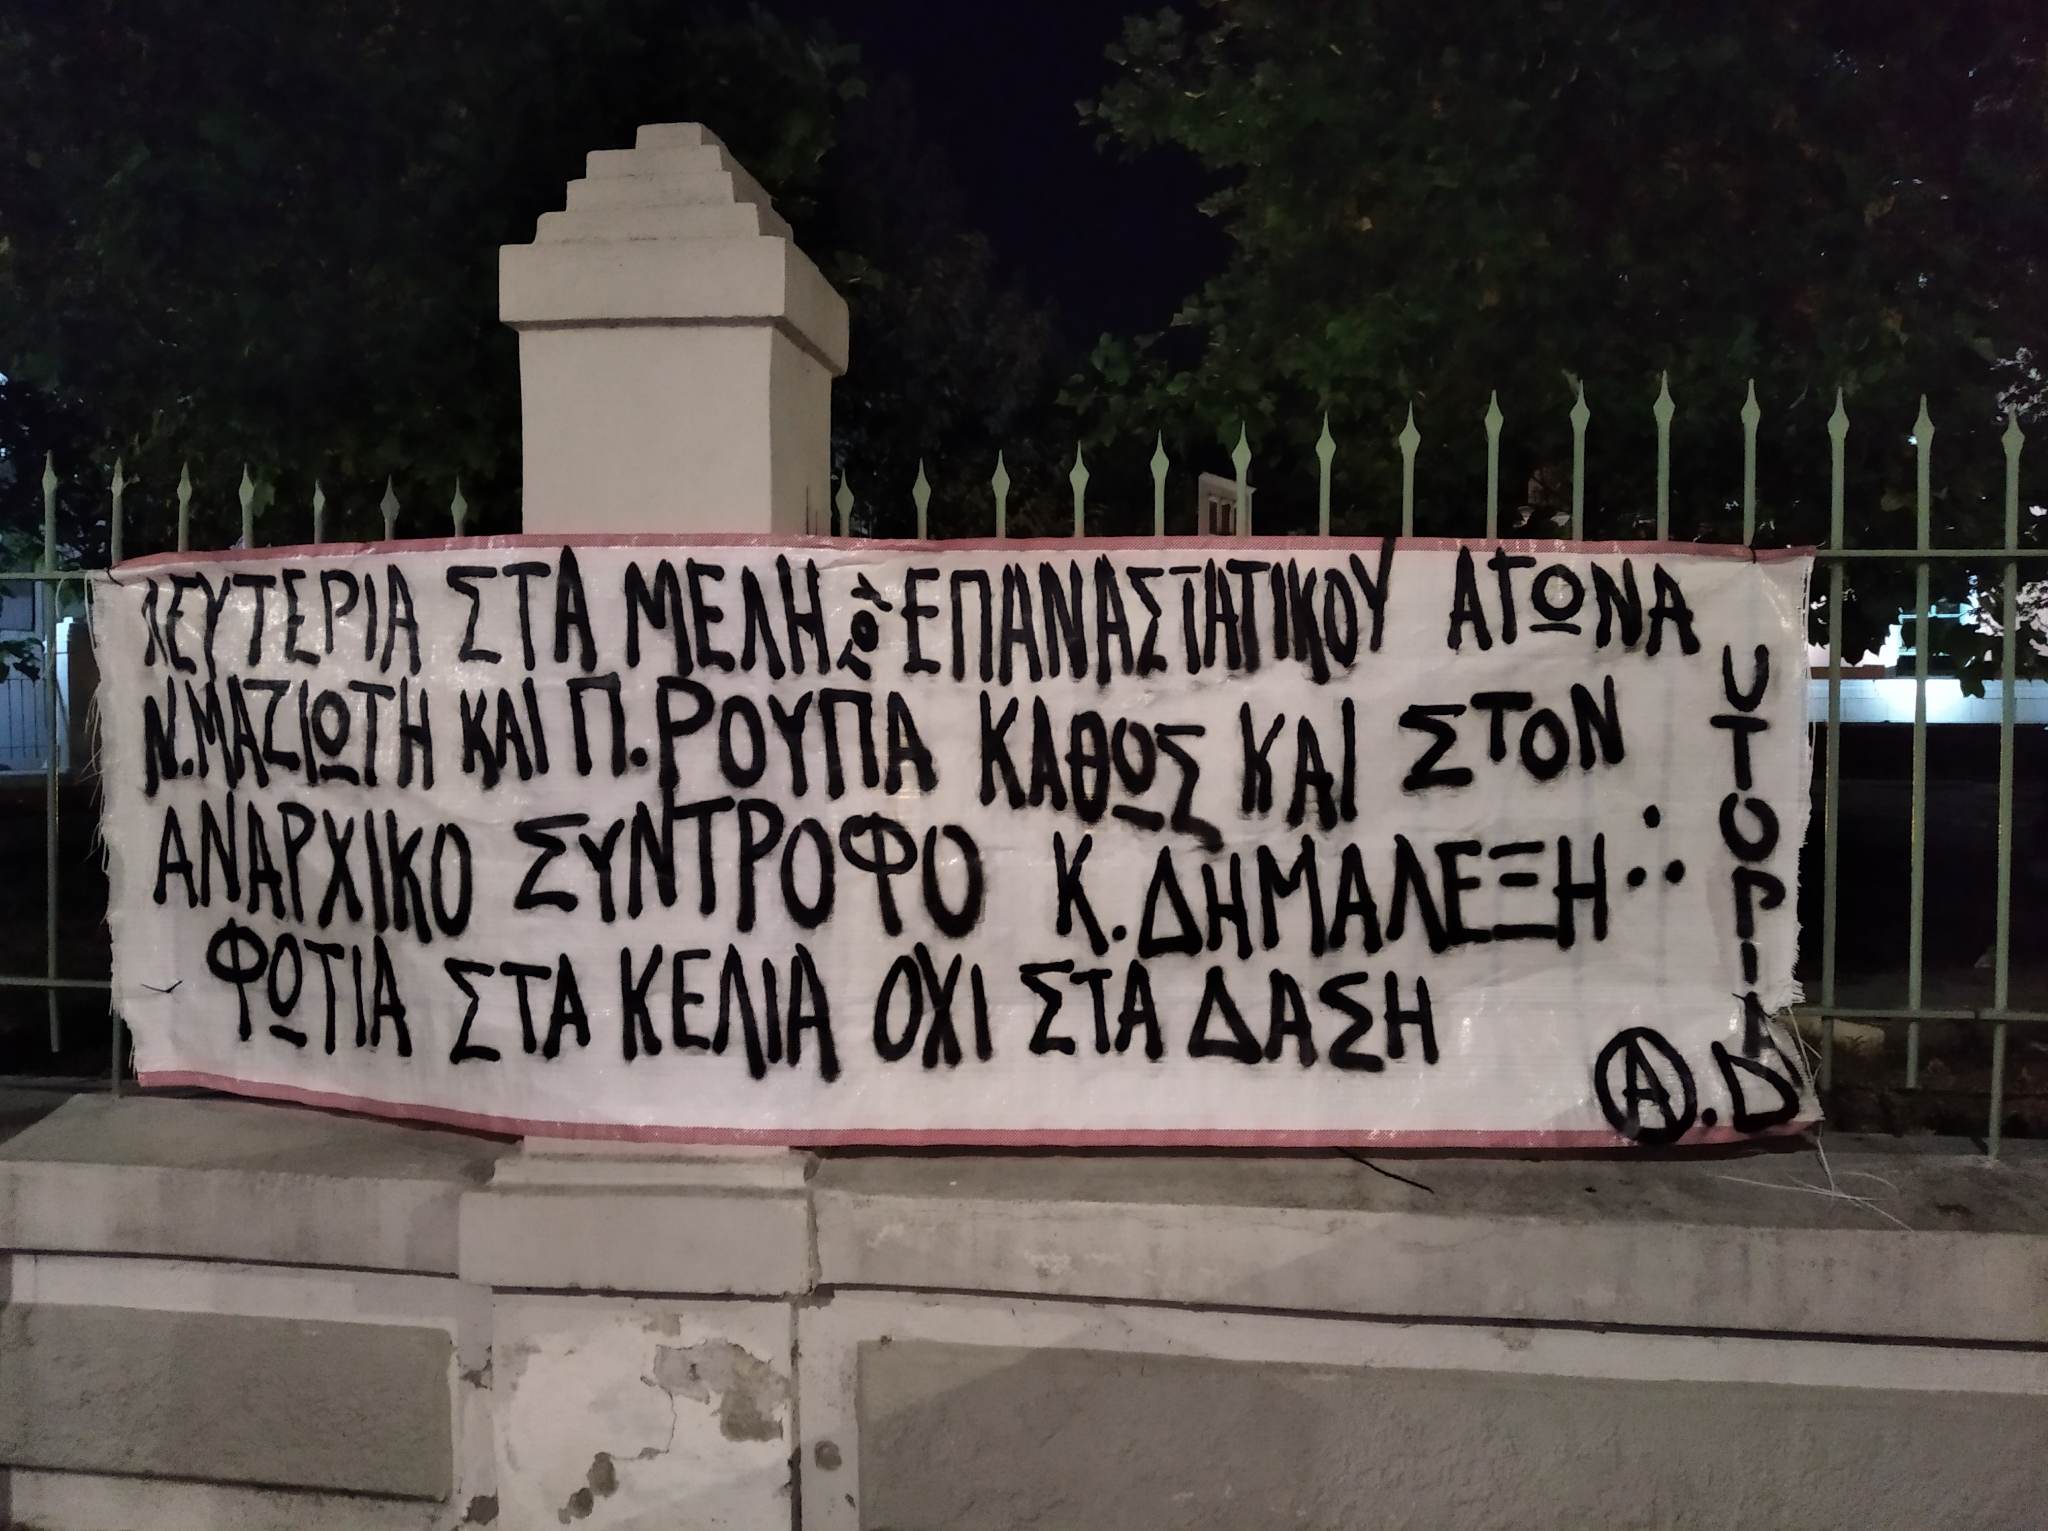 ΛΕΥΤΕΡΙΑ ΣΤΑ ΜΕΛΗ ΤΟΥ ΕΠΑΝΑΣΤΑΤΙΚΟΥ ΑΓΩΝΑ
Ν.ΜΑΖΙΩΤΗ ΚΑΙ Π.ΡΟΥΠΑ ΚΑΘΩΣ ΚΑΙ ΣΤΟΝ
ΑΝΑΡΧΙΚΟ ΣΥΝΤΡΟΦΟ Κ.ΔΗΜΑΛΕΞΗ
ΦΩΤΙΑ ΣΤΑ ΚΕΛΙΑ ΟΧΙ ΣΤΑ ΔΑΣΗ
UTOPIA
A.D